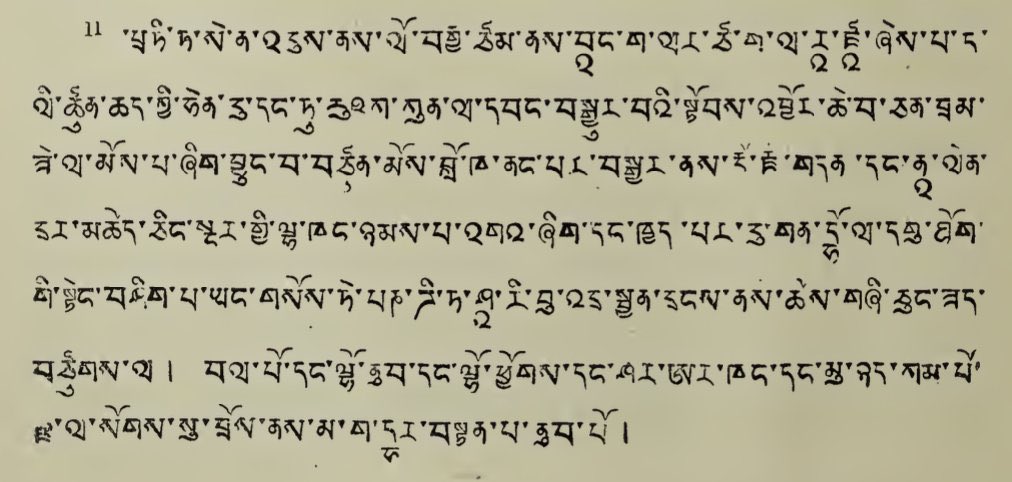 11 ་པྲ་ཏི་ཏ་སེ་ན་འདས་ནས་ལོ་བརྒྱ་ཙམ་ནས་བཱང་ག་ལར་ཙ་ག་ལ་རཱ་ཛཱ་ཞེས་པ་ད་
ལི་ཚུན་ཆད་ཀྱི་ཧེན་དུ་དང་ཏུ་རུཥཀ་ཀུན་ལ་དབང་བསྒྱུར་བའི་སྟོབས་འབྱོར་ཆེ་བ་ཅན་བྲམ་
ཟེ་ལ་མོས་པ་ཞིག་བྱུང་བ་བཙུན་མོས་བློ་ཁ་ནང་པར་བསྒྱུར་ནས་རྡོ་རྗེ་གདན་དང་ནཱ་ལེན་
དྲར་མཆོད་ཅིང་སྔར་གྱི་ལྷ་ཁང་ཉམས་པ་འགའ་ཞིག་དང་ཁྱད་པར་དུ་གན་དྷོ་ལ་དགུ་ཐོག་
གི་སྟེང་བཤིག་པ་ཡང་གསོས་ཏེ་པཎ་ཌི་ཏ་ཤཱ་རི་བུ་འདྲ་སྤྱན་དྲངས་ནས་ཆོས་གཞི་ཆུང་ཟད་
བཙུགས་ལ། བལ་པོ་དང་ལྷོ་ནུབ་དང་ལྷོ་ཕྱོགས་དང་ཤར་ཨར་ཁང་དང་མུ་ཉད་ཀམ་པོ་
ཛ་ལ་སོགས་སུ་བྲོས་ནས་མ་ག་དྷར་བསྟན་པ་ནུབ་པོ།